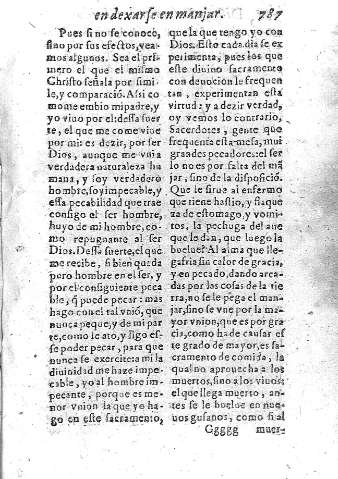 en dexarse en manjar. 787
Pues si no se conocò,
sino por sus efectos, vea-
mos algunos. Sea el pri-
mero el que el mismo
Christo señala por simi-
le, y comparació. Assi co
mo me embio mi padre, y
yo viuo por el: dessa suer
te, el que me come viue
por mi: es dezir, por ser
Dios, aunque me vnia
verdadera naturaleza hu
mana, y soy verdadero
hombre, soy impecable, y
essa pecabilidad que trae
consigo el ser hombre,
huyo de mi hombre, co-
mo repugnante al ser
Dios. Dessa suerte, el que
me recibe, si bien queda
pero hombre en el ser, y
por el consiguiente peca
ble, q̃ puede pecar: mas
hago con el tal vniò, que
nunca peque, y de mi par
te, como le ato, y ligo es-
se poder pecar, para que
nunca se exercite: a mi la
diuinidad me haze impe-
cable, yo al hombre im-
pecante, porque es me-
nor vnion la que yo ha-
go en este sacramento,
que la que tengo yo con
Dios. Esto cada dia se ex
perimenta, pues los que
este diuino sacramento
con deuociòn le frequen
tan, experimentan esta
virtud: y a dezir verdad,
oy vemos lo contrario,
Sacerdotes, gente que
frequenta esta mesa, mui
grandes pecadores: el ser
lo no es por falta del mā
jar, sino de la disposiciō.
Que le sirue al enfermo
que tiene hastio, y flaque
za de estomago, y vomi-
tos, la pechuga del aue
que le dan, que luego la
buelue? Al alma que lle-
ga fria sin calor de gracia,
y en pecado, dando arca-
das por las cosas de la tie
rra, no se le pega el man-
jar, sino se vne por la ma-
yor vnion, que es por gra
cia, como ha de causar es
te grado de mayor, es sa-
cramento de comida, la
qual no aprouecha a los
muertos, sino a los viuos:
el que llega muerto, an-
tes se le buelue en nue-
uos gusanos, como si al
Ggggg muer-